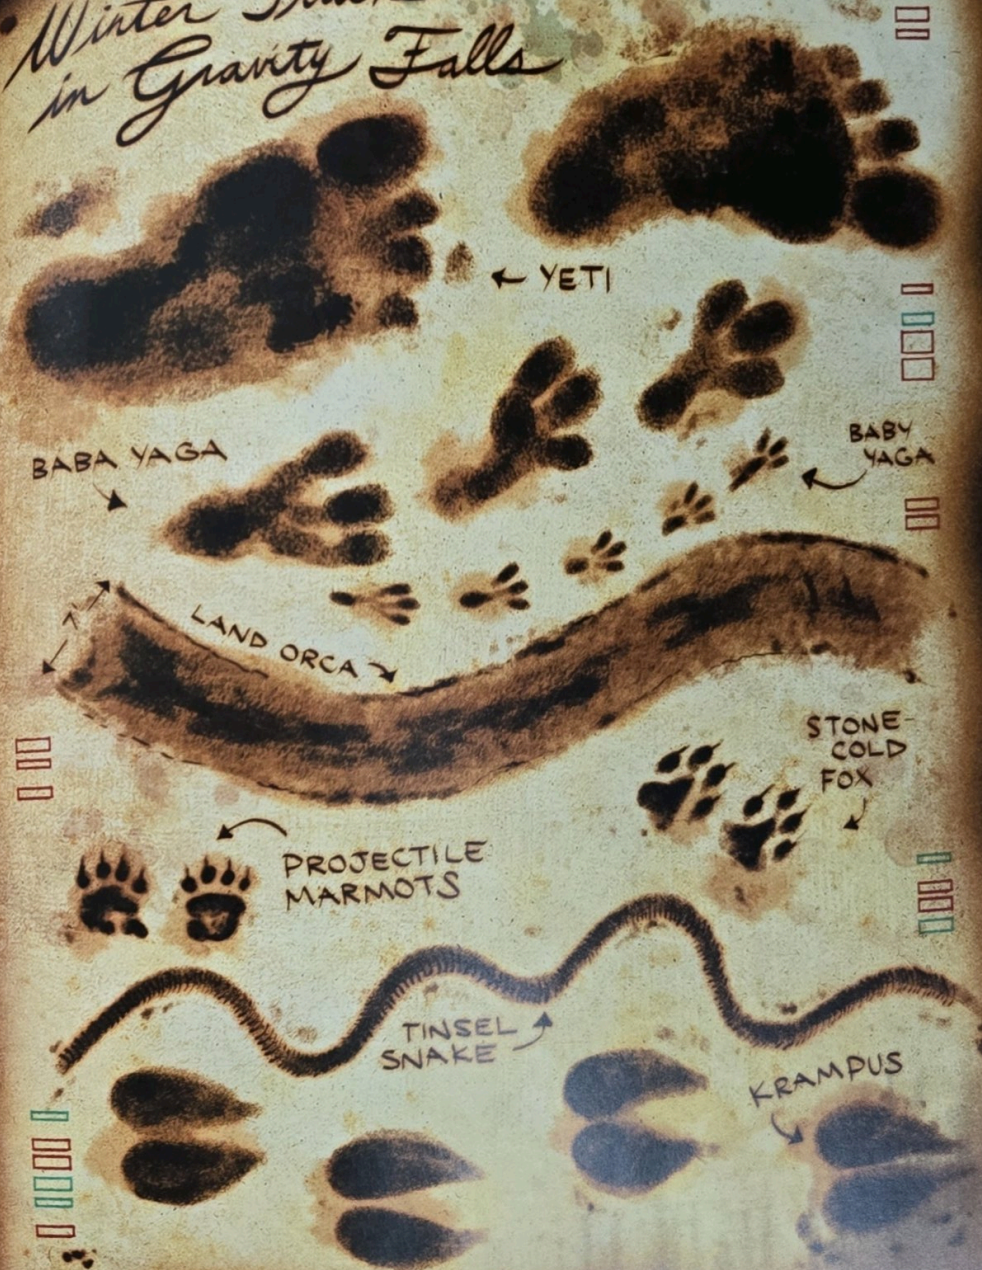 Winter
in Gravity Falls
← YETI
BABA YAGA
BABY
YAGA
LAND ORCA
?
STONE-
COLD
FOX
PROJECTILE
MARMOTS
TINSEL
SNAKE
KRAMPUS